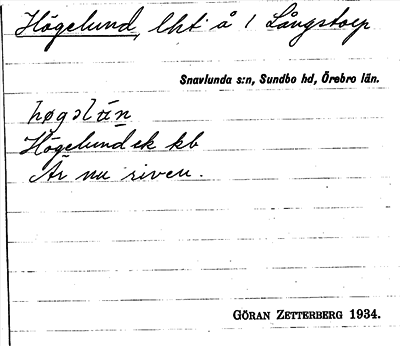 Högelund, lht å 1 Långstorp
Snavlunda s:n, Sundbo hd, Örebro län.
Högelund ek kb
Är nu riven.
GÖRAN ZETTERBERG 1934.